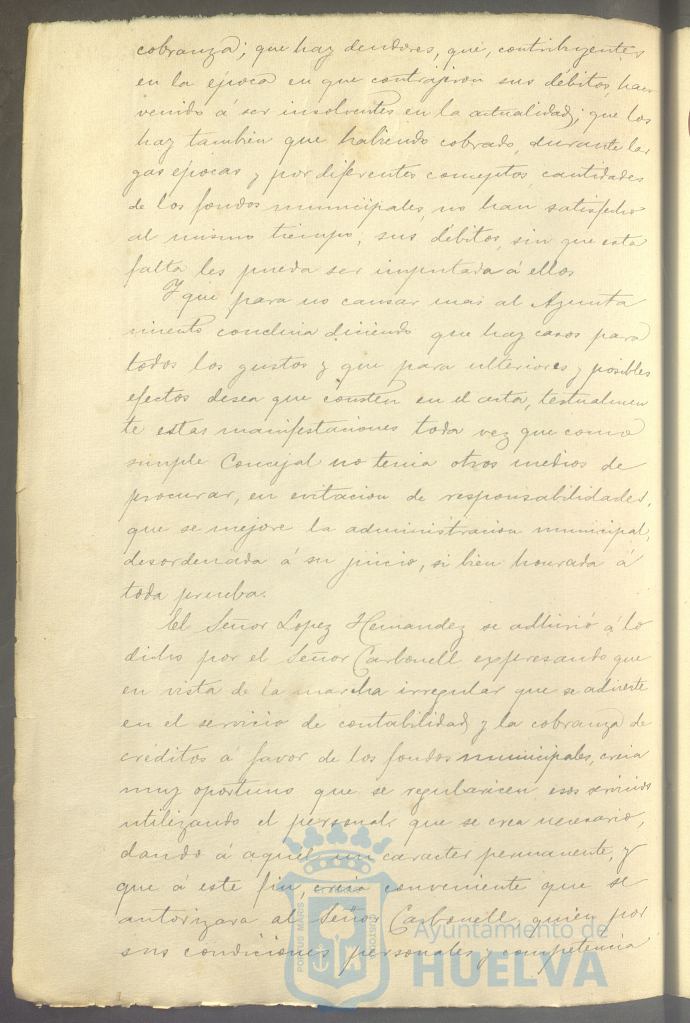 cobranza; que hay deudores, que, contribuyentes
en la época en que contrajeron sus débitos, han
venido á ser insolventes en la actualidad; que los
hay tambien que habiendo cobrado, durante lar
gas épocas y por diferentes conceptos, cantidades
de los fondos municipales, no han satisfecho
al mismo tiempo, sus débitos, sin que esta
falta les pueda ser imputada á ellos
Y que para no cansar mas al Ayunta
miento concluia diciendo que hay casos para
todos los gustos y que para ulteriores y posibles
efectos desea que consten en el acta, textualmen
te estas manifestaciones toda vez que como
simple Concejal no tenia otros medios de
procurar, en evitacion de responsabilidades,
que se mejore la administracion municipal,
desordenada á su juicio, si bien honrada á
toda prueba.
El Señor Lopez Hernandez se adhirió á lo
dicho por el Señor Carbonell expresando que
en vista de la marcha irregular que se advierte
en el servicio de contabilidad y la cobranza de
créditos á favor de los fondos municipales, creia
muy oportuno que se regularicen esos servicios
utilizando el personal que se crea necesario,
dando á aquel un caracter permanente, y
que á este fin, creia conveniente que se
autorizara al Señor Carbonell, quien por
sus condiciones personales y competencia
PORTUS MARIS
CUSTODIA
Ayuntamiento de
HUELVA